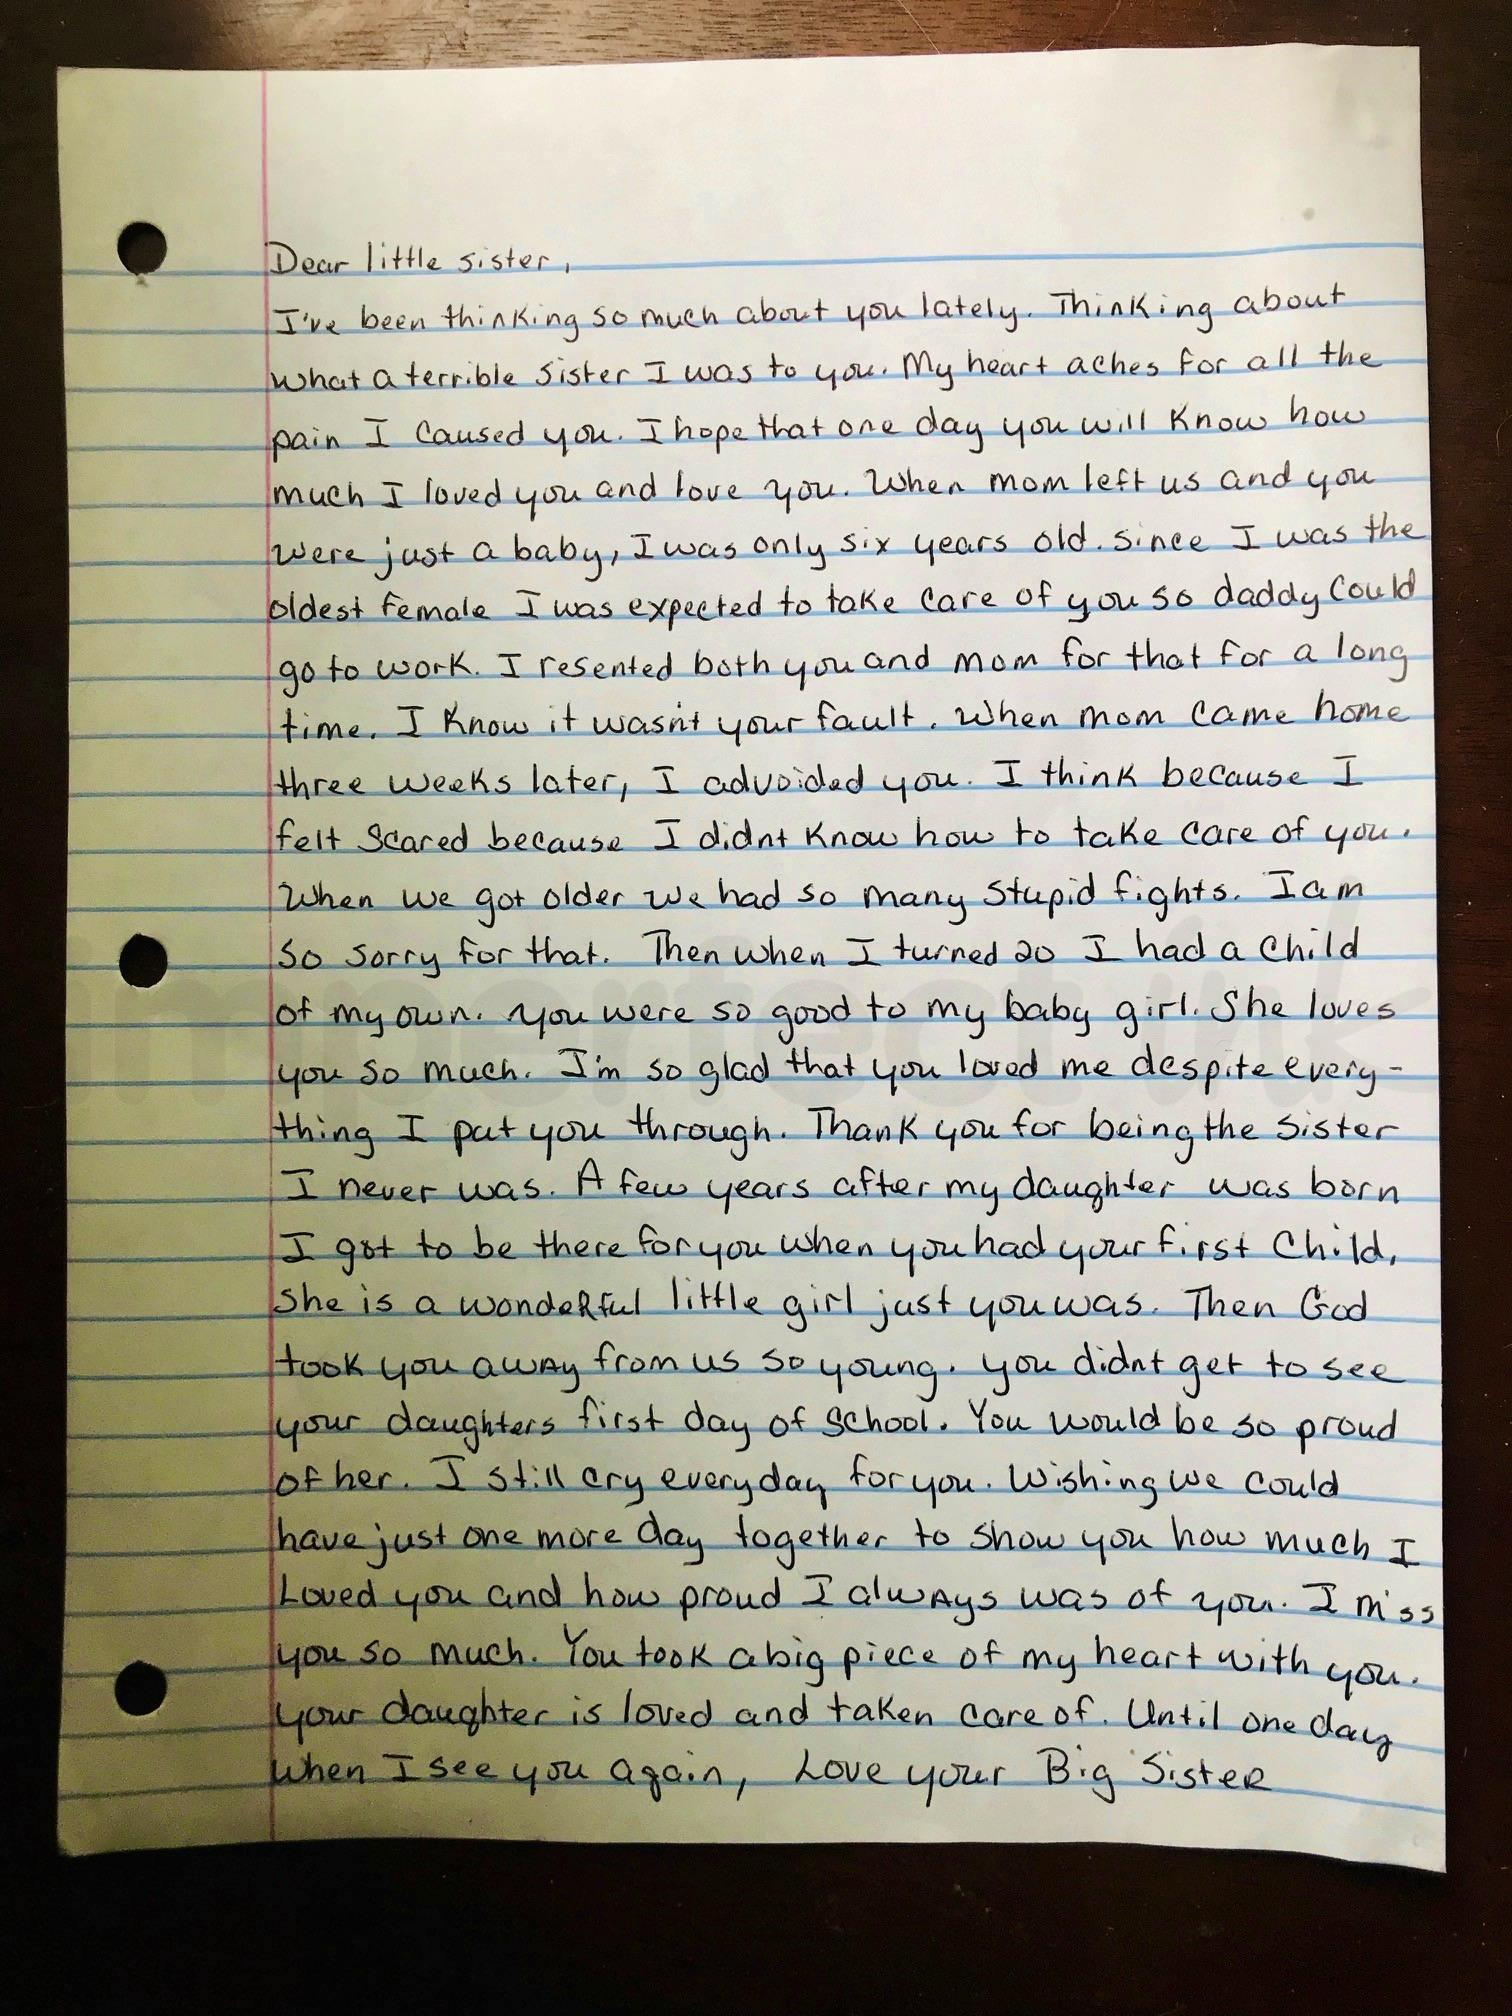 Dear little sister,
I've been thinking so much about you lately. Thinking about
what a terrible sister I was to you. My heart aches for all the
pain I caused you. I hope that one day you will know how
much I loved you and love you. When mom left us and you
were just a baby, I was only six years old. since I was the
oldest female I was expected to take care of you so daddy could
go to work. I resented both you and mom for that for a long
time. I know it wasn't your fault. When mom came home
three weeks later, I advoided you. I think because I
felt scared because I didnt know how to take care of you.
When we got older we had so many stupid fights. I am
so sorry for that. Then when I turned 20 I had a child
of my own. you were so good to my baby girl. She loves
you so much. I'm so glad that you loved me despite every-
thing I put you through. Thank you for being the sister
I never was. A few years after my daughter was born
I got to be there for you when you had your first child,
She is a wonderful little girl just you was. Then God
took you away from us so young. you didnt get to see
your daughters first day of school. You would be so proud
of her. I still cry everyday for you. Wishing we could
have just one more day together to show you how much I
Loved you and how proud I always was of you. I miss
you so much. You took a big piece of my heart with you.
your daughter is loved and taken care of. Until one day
when I see you again, Love your Big Sister